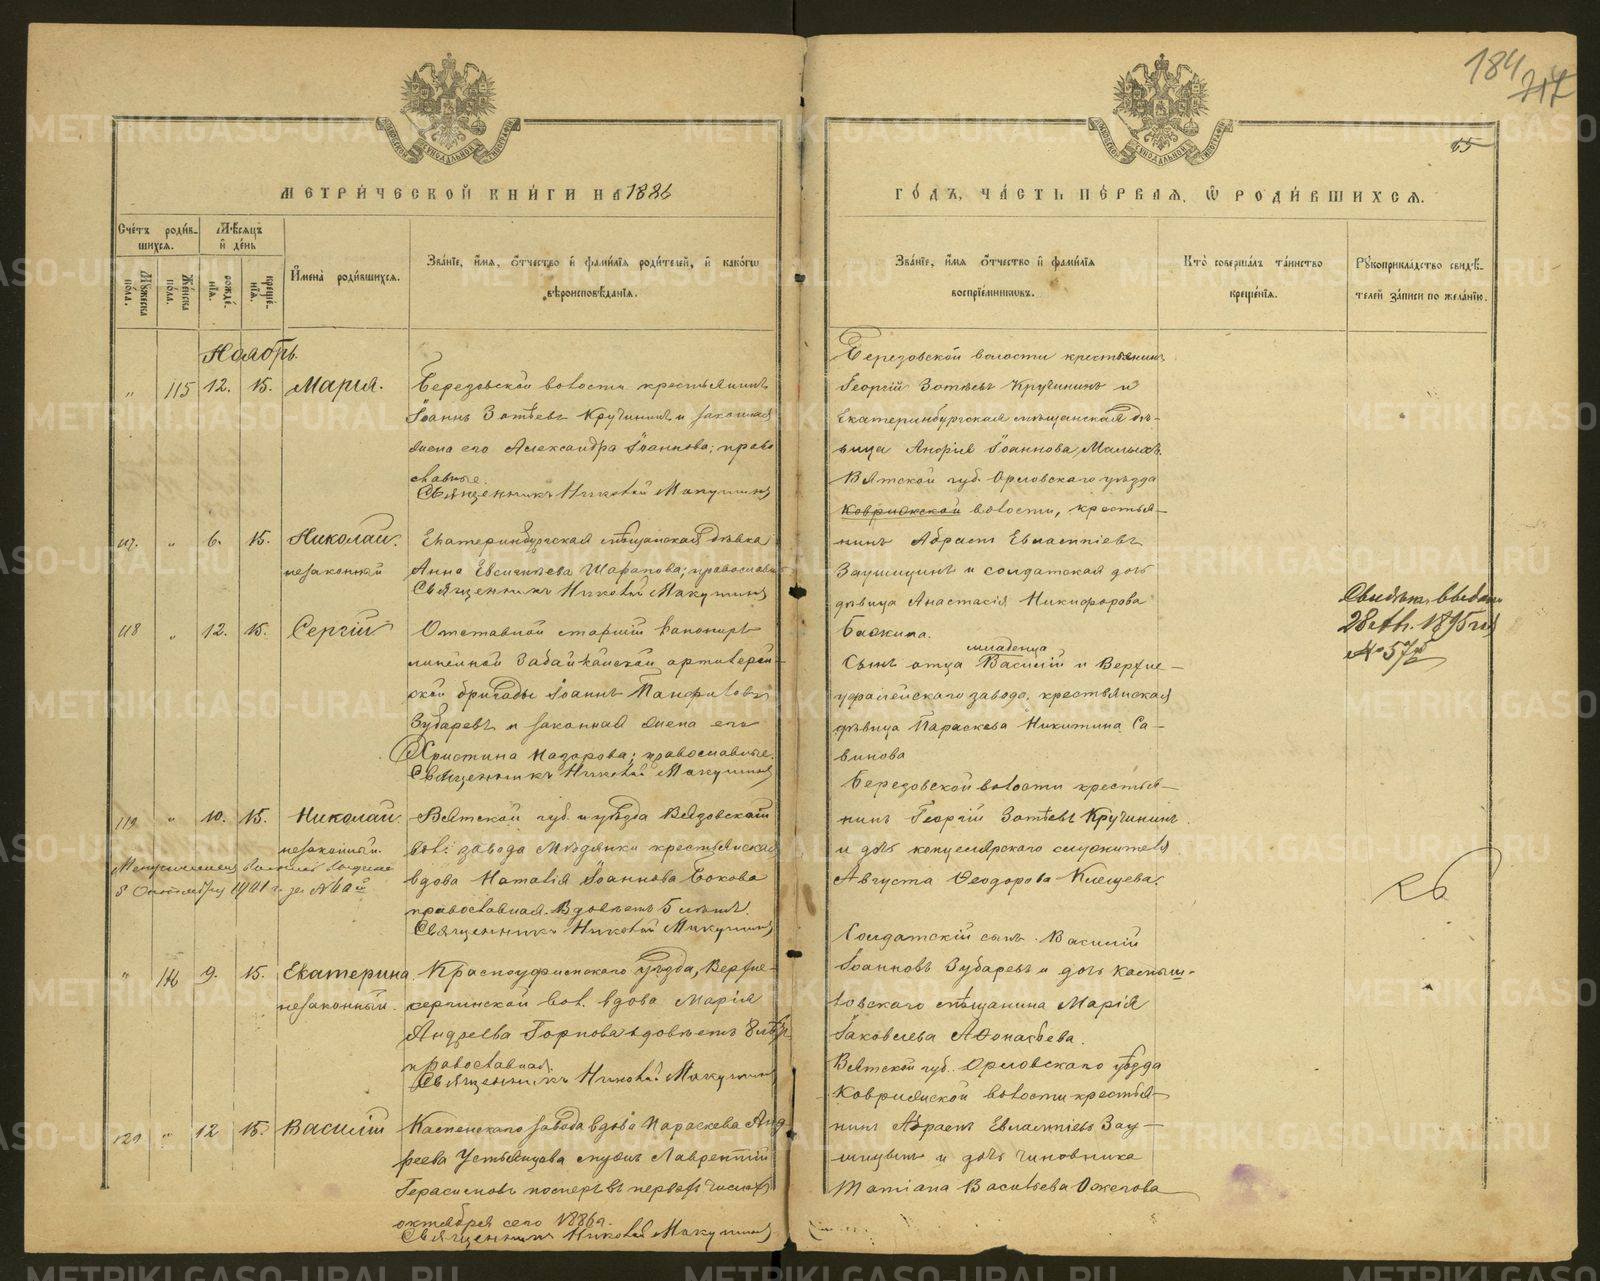 184
717
65
МЕТРИЧЕСКОЙ КНИГИ НА 1886
Счетъ родив-
шихся.
Мѣсяцъ
и день
Мужеска
пола.
Женска
пола.
рожде-
нія.
креще-
нія.
Имена родившихся.
Званіе, имя, отчество и фамилія родителей, и какогѡ
вѣроисповѣданія.
Ноябрь.
" 115 12. 15. Марія.
Березовской волости крестьянинъ
Іоаннъ Зотѣевъ Кручининъ и законная
жена его Александра Іоаннова; право
славные.
Священникъ Николай Макушинъ
117. " 6. 15. Николай.
незаконный
Екатеринбургская мѣщанская дѣвка
Анна Евсигнѣева Шарапова; православн
Священникъ Николай Макушинъ
118 " 12. 15. Сергій
Отставной старшій канониръ
линейной Забайкальской артилерій-
ской бригады Іоаннъ Панфиловъ
Зубаревъ и законная жена его
Христина Назарова; православные.
Священникъ Николай Макушинъ
119 " 10. 15. Николай.
незаконный.
8 1901 г. за №
Вятской губ. и уѣзда Вязовской
вол. завода крестьянская
вдова Наталія Іоаннова Бокова
православная. Вдовѣетъ 5 лѣтъ.
Священникъ Николай Макушинъ
" 116 9. 15. Екатерина.
незаконный.
Красноуфимского уѣзда, Верхне-
сергинской вол. вдова Марія
Андреева Горнова вдовѣетъ 8 лѣтъ
православная.
Священникъ Николай Макушинъ
120 " 12 15. Василій
Каслинскаго завода вдова Параскева Анд
реева Устьянцова мужъ Лаврентій
Герасимовъ померъ въ первыхъ числахъ
октября сего 1886 г.
Священникъ Николай Макушинъ
ГОДЪ, ЧАСТЬ ПЕРВАЯ, Ѡ РОДИВШИХСЯ.
Званіе, имя отчество и фамилія
воспріемниковъ.
Кто совершалъ таинство
крещенія.
Рукоприкладство свидѣ-
телей записи по желанію.
Березовской волости крестьянинъ
Георгій Зотѣевъ Кручининъ и
Екатеринбургская мѣщанская дѣ-
вица Іоаннова Малыхъ.
Вятской губ. Орловскаго уѣзда
Коврижской волости, крестья-
нинъ Абрамъ Евлампіевъ
Заушицинъ и солдатская дочь
дѣвица Анастасія Никифорова
Бажина.
младенца
Сынъ отца Василій и Верхне-
уфалейскаго завода, крестьянская
дѣвица Параскева Никитина Са-
винова
Березовской волости крестья-
нинъ Георгій Зотѣевъ Кручининъ
и дочь канцелярскаго служителя
Августа Ѳеодорова Клещева.
Солдатскій сынъ Василій
Іоанновъ Зубаревъ и дочь камыш-
ловскаго мѣщанина Марія
Іаковлева Аѳонасьева.
Вятской губ. Орловскаго уѣзда
Коврижской волости крестья-
нинъ Абрамъ Евлампіевъ Зау-
шицынъ и дочь чиновника
Татіана Васильева Ожегова
28 1895 г.
№ 57
METRIKI.GASO-URAL.RU